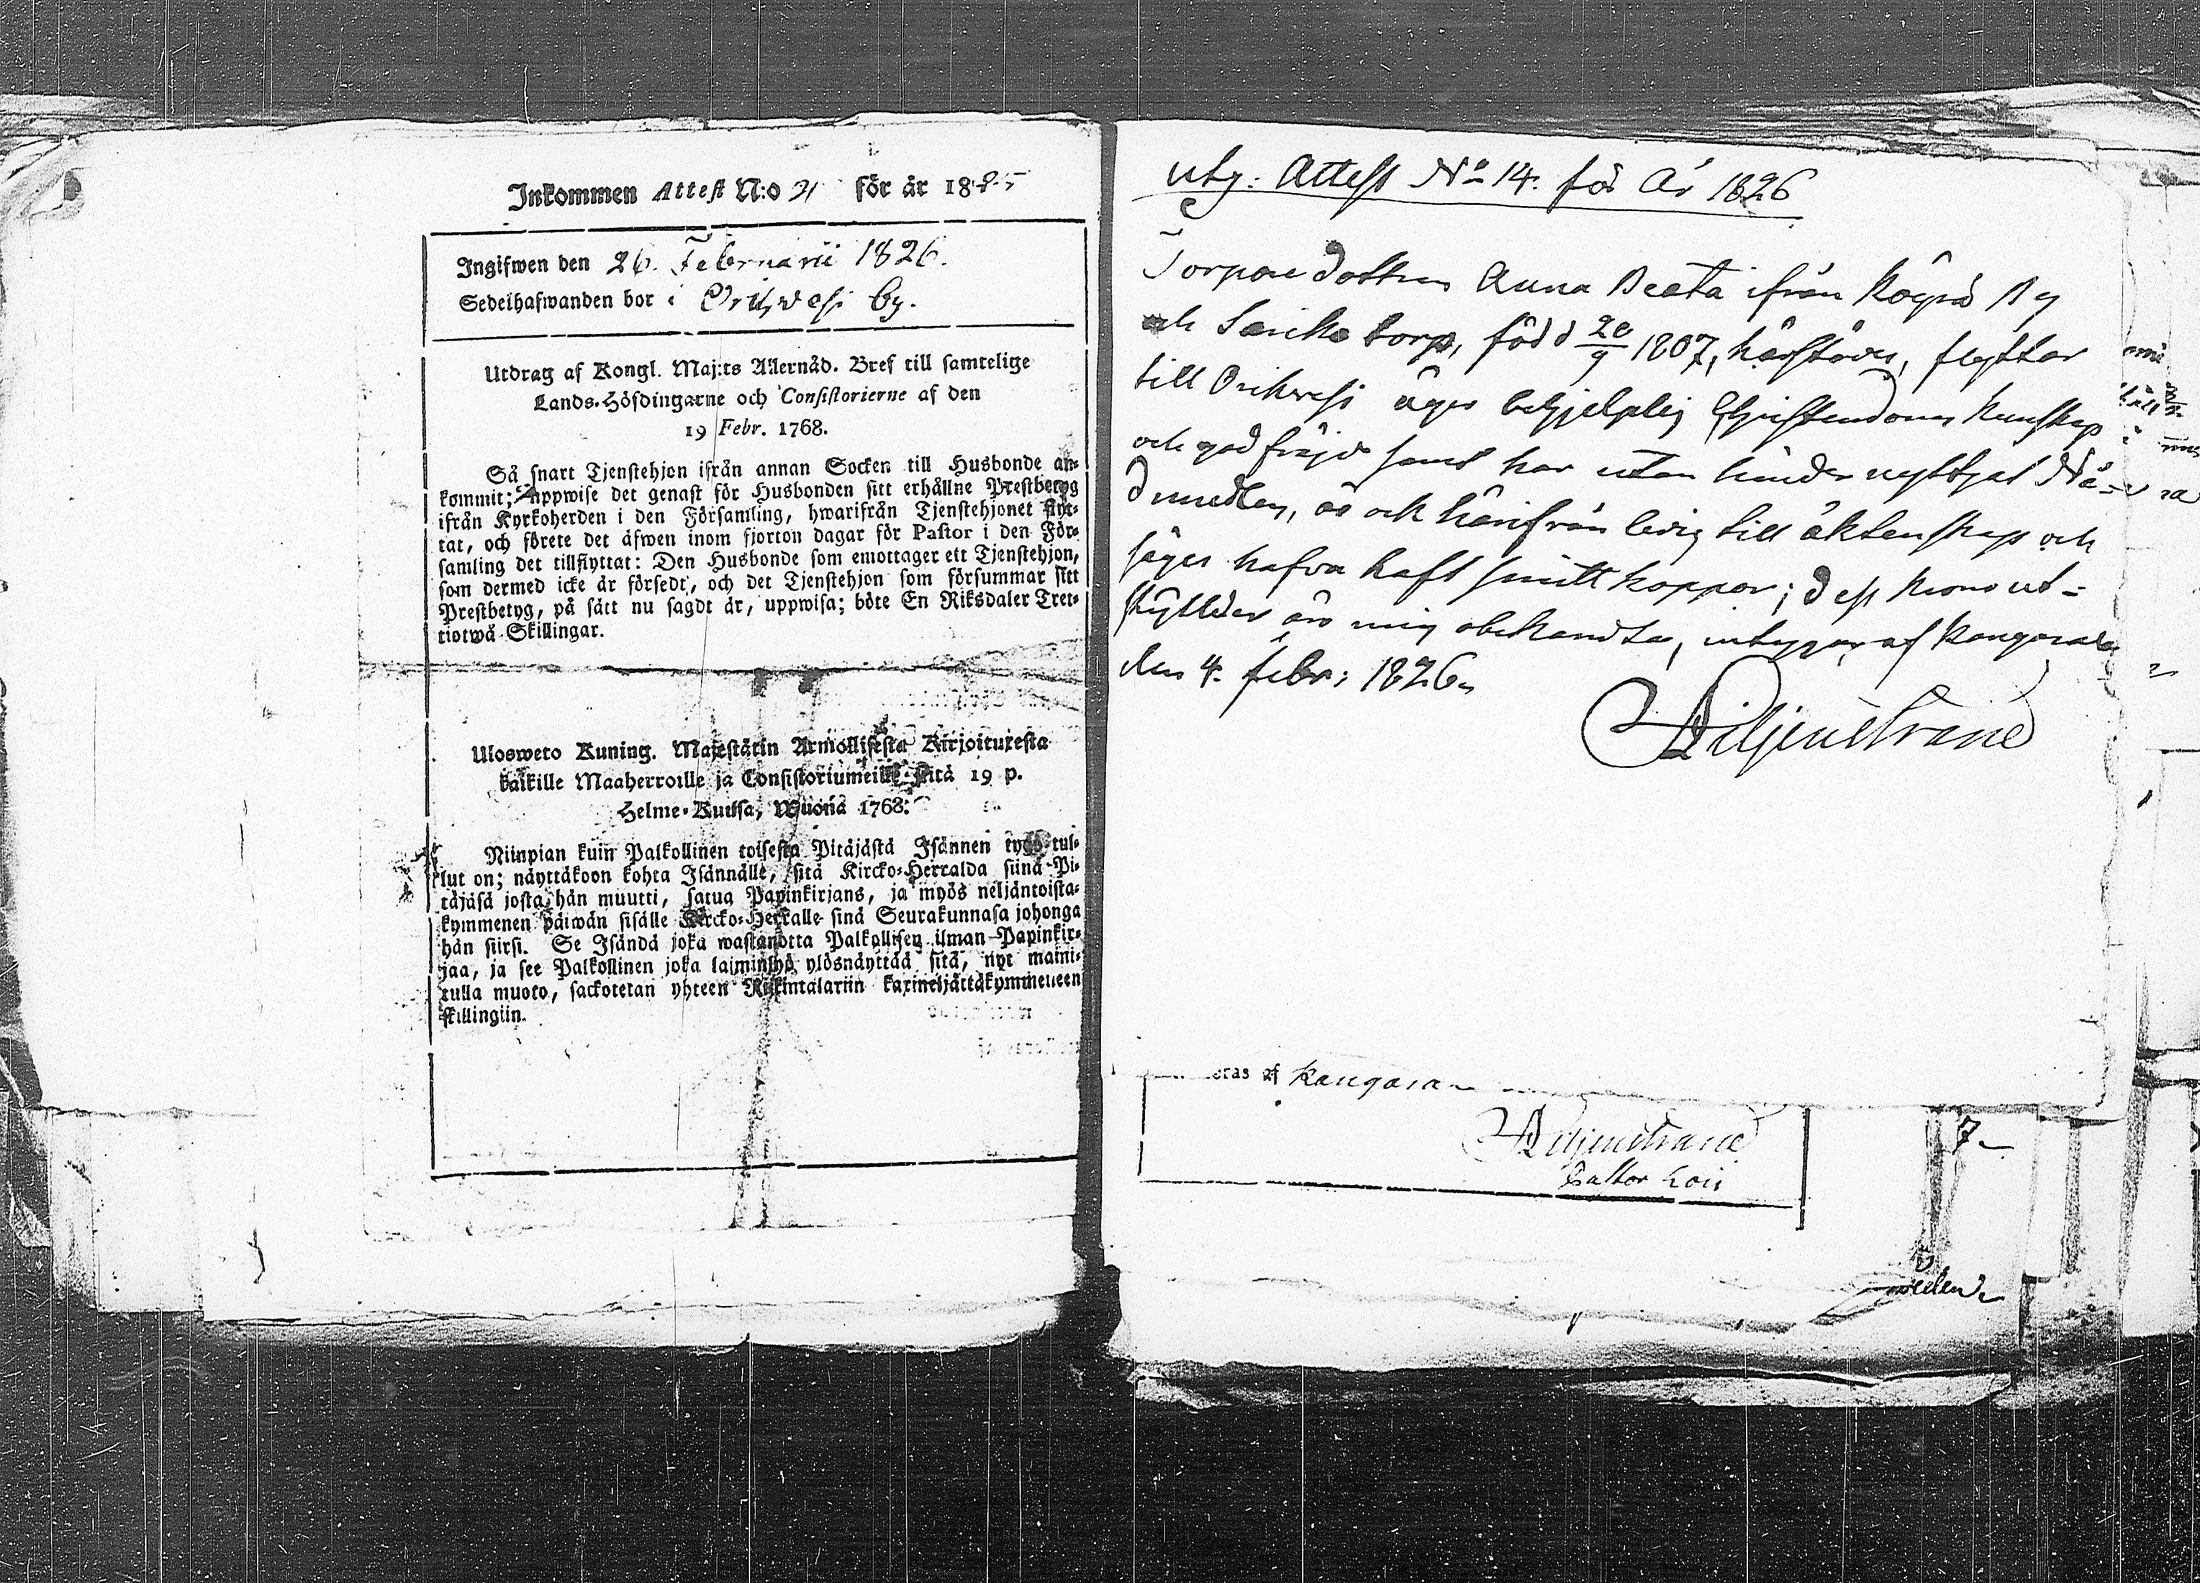 Inkommen Attest N:o 91 för år 1825
Ingifwen den 26. Februarii 1826.
Sedelhafwanden bor i Orihwesi by.
Utdrag af Kongl. Maj:ts Allernåd. Bref till samtelige
Lands-Höfdingarne och Consistorierne af den
19 Febr. 1768.
Så snart Tjenstehjon ifrån annan Socken till Husbonde an-
kommit; uppwise det genast för Husbonden sitt erhållne Prestbetyg
ifrån Kyrkoherden i den Församling, hwarifrån Tjenstehjonet flyt-
tat, och förete det äfwen inom fjorton dagar för Pastor i den För-
samling det tillflyttat: Den Husbonde som emottager ett Tjenstehjon,
som dermed icke är försedt, och det Tjenstehjon som försummar sitt
Prestbetyg, på sätt nu sagdt är, uppwisa; böte En Riksdaler Tret-
tiotwå Skillingar.
Ulosweto Kuning. Majestätin Armollisesta Kirjoituxesta
kaikille Maaherroille ja Consistoriumeille sitä 19 p.
Helme-Kuusa, Wuona 1768.
Niinpian kuin Palkollinen toisesta Pitäjästä Isännen tygö tul-
lut on; näyttäkoon kohta Isännälle, sitä Kircko-Herralda siinä Pi-
täjäsä josta hän muutti, satua Papinkirjans, ja myös neljäntoista-
kymmenen päiwän sisälle Kircko-Herralle sinä Seurakunnasa johonga
hän siirsi. Se Isändä joka wastanotta Palkollisen ilman Papinkir-
jaa, ja see Palkollinen joka laiminlyö ylösnäyttää sitä, nyt maini-
tulla muoto, sackotetan yhteen Riikintalariin kaxineljättäkymmeneen
skillingiin.
utg: Attest No 14. för År 1826
Torpare dottren Anna Beata ifrån Köyrä By
och Sarike torp, född 20/9 1807, härstädes, flyttar
till Orihwesi äger behjelplig Christendoms kunskap
och god frägd samt har utan hinder nyttjat Nå-
dmedlen, är ock härifrån ledig till äktenskap och
säges hafva haft smitt koppor; dess krono ut-
skyllder äro mig obekandta, intygar af Kangasala
den 4. febr: 1826.
A Liljenstrand
eras af Kangasa
A Liljenstrand
Pastor Loci